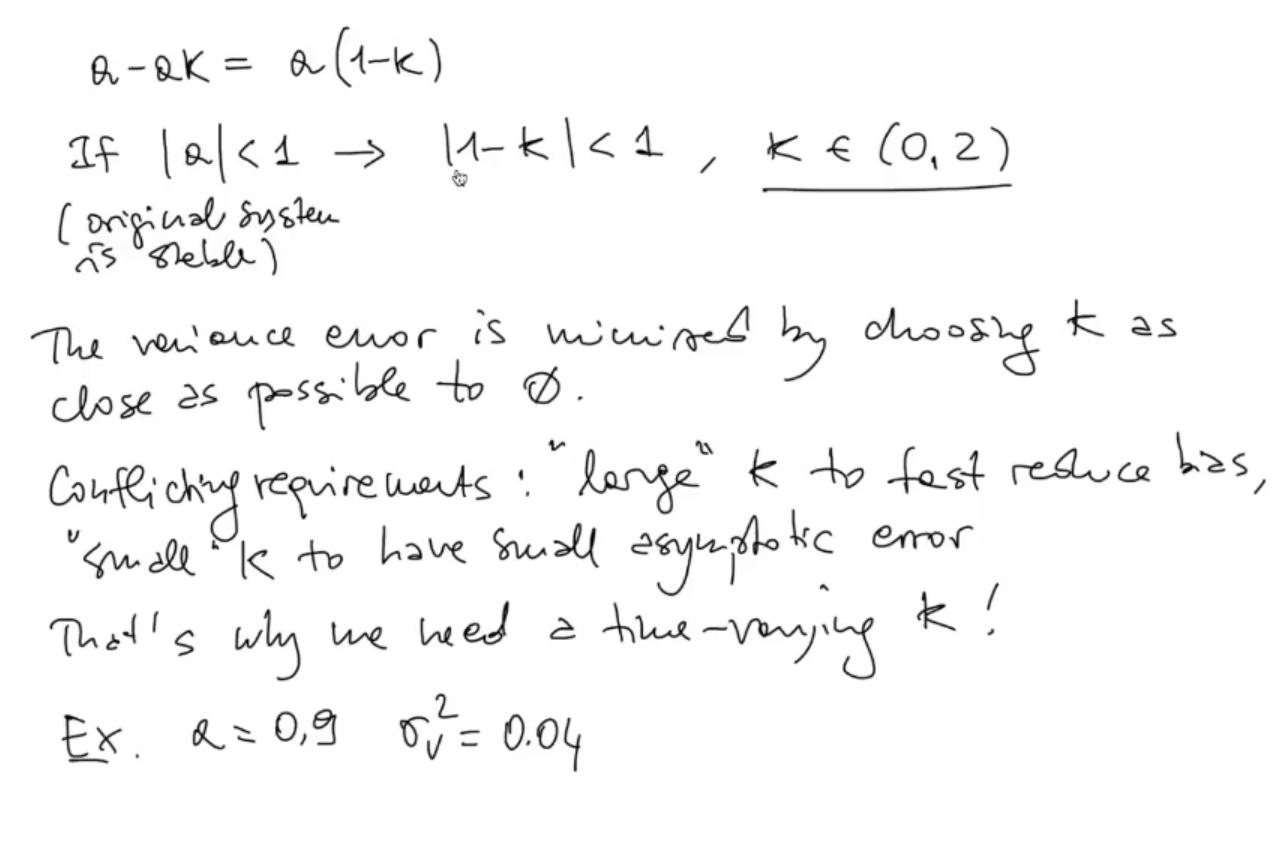 a-ak = a(1-k)
If |a|<1 → |1-k|<1, k ∈ (0,2)
(original system
is stable)
The variance error is minimized by choosing k as
close as possible to Ø.
Conflicting requirements: "large" k to fast reduce bias,
"small" k to have small asymptotic error
That's why we need a time-varying k!
Ex. a = 0,9 σᵥ² = 0.04